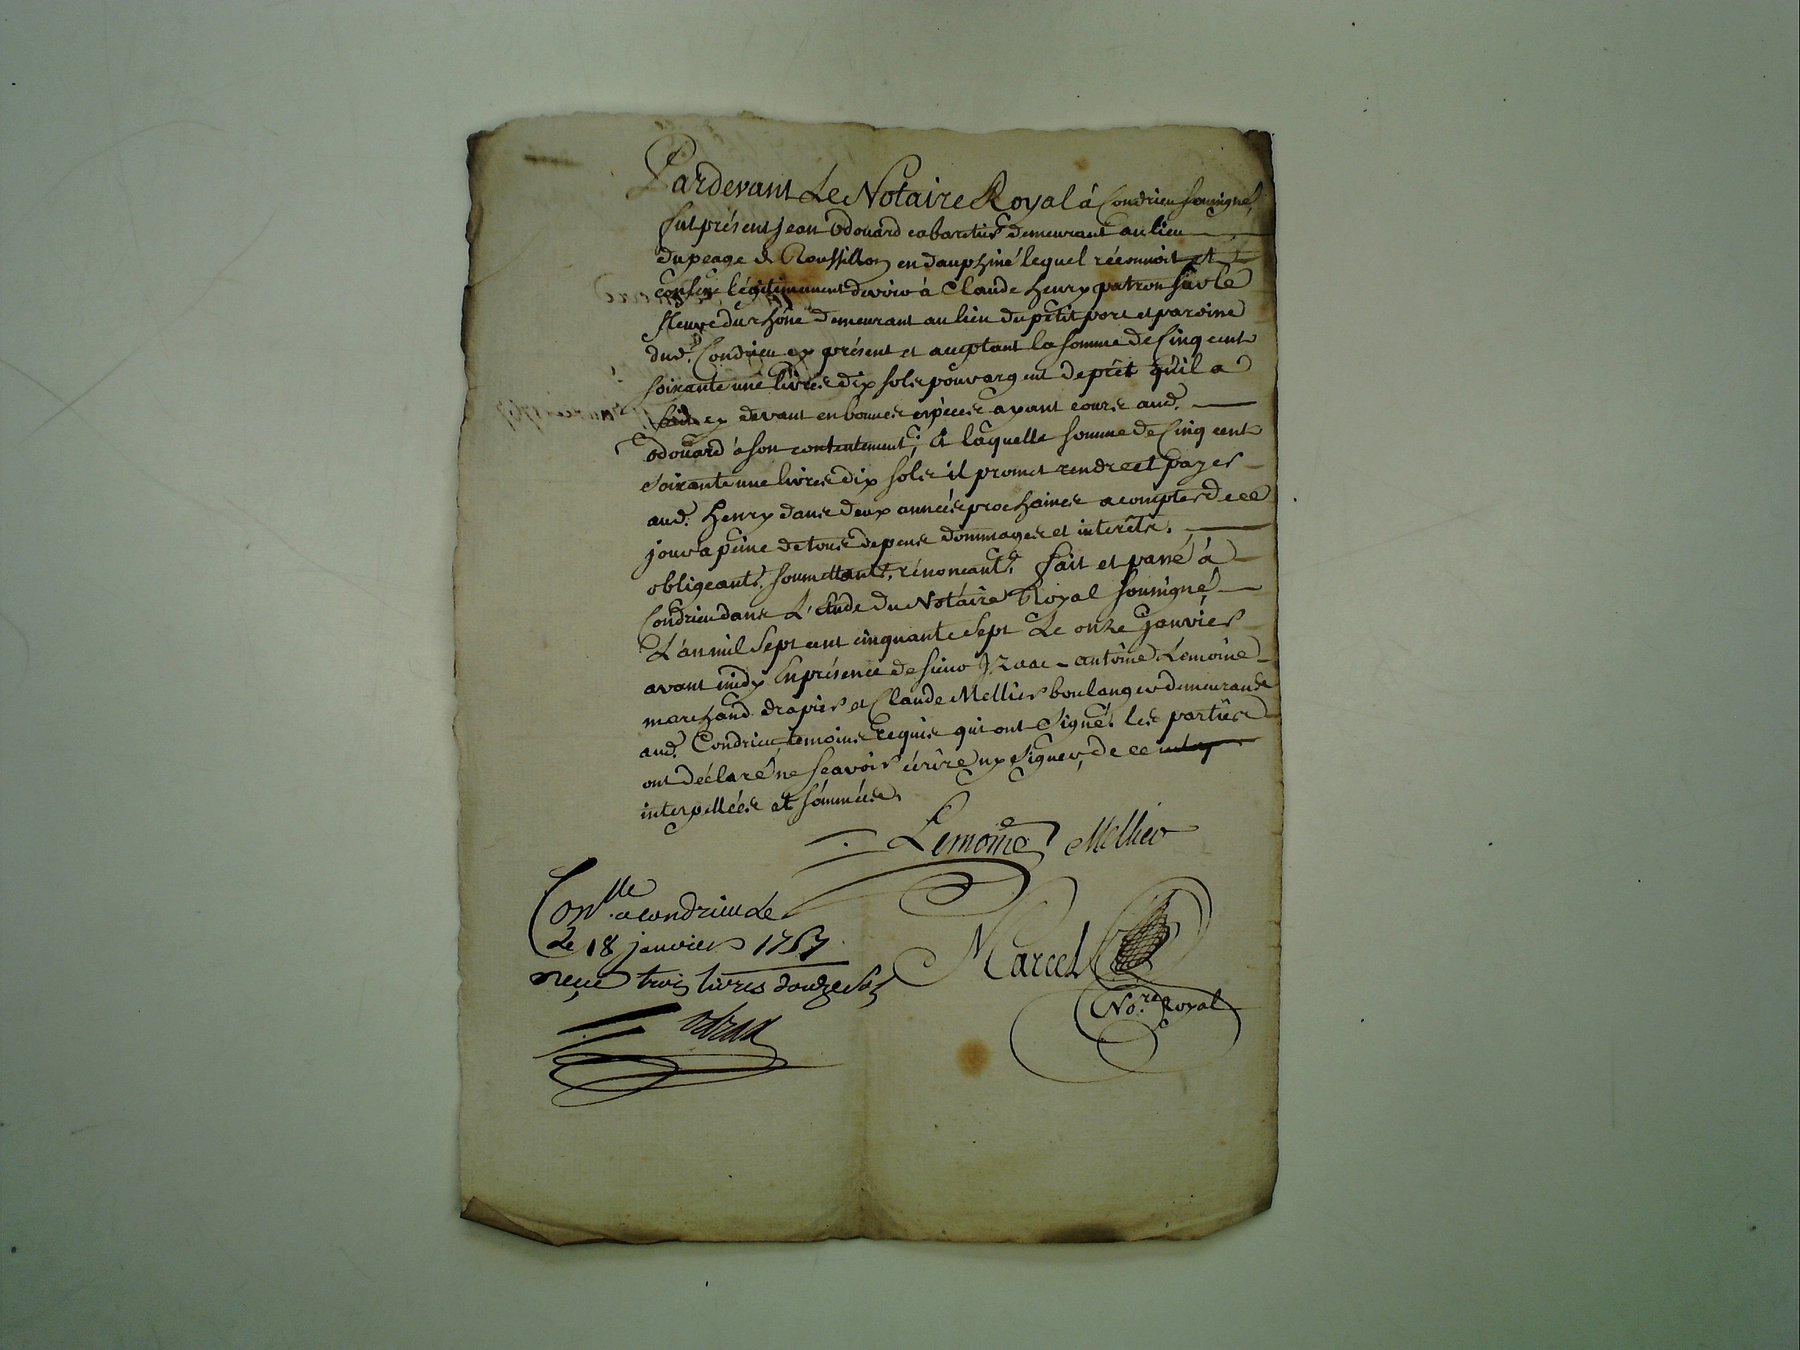 Pardevant Le Notaire Royal à Condrieu soussigné,
fut présent Jean odouard cabaretier demeurant au lieu
du peage de Roussillon en dauphiné lequel réconnoit et
confesse légitimement devoir à Claude henry patron sur le
fleuve du rhône demeurant au lieu du pétit port et paroisse
dud. Condrieu cy présent et acceptant la somme de Cinq cent
soixante une livres dix sols pour argent de prêt qu'il a
fait cy devant en bonnes espèces ayant cours aud.
odouard à son contentement; laquelle somme de Cinq cent
soixante une livres dix sols il promet rendre et payer
aud. henry dans deux années prochaines a compter de ce
jour a peine de tous depens dommages et interêts.
obligeants, soumettants, rénonçants. fait et passé à
Condrieu dans L'étude du Notaire Royal soussigné
L'an mil sept cent cinquante sept Le onze janvier
avant midy En présence de sieur Izaac antoine Lemoine
marchand drapier et Claude Mellier boulanger demeurants
aud. Condrieu témoins requis qui ont signé. les parties
ont déclaré ne sçavoir écrire ny signer, de ce
interpellées et sommées.
Lemoine Mellier
Con.lle a condrieu Le
Le 18 janvier 1757
reçu trois livres douze sols
Marcel
No.re Royal